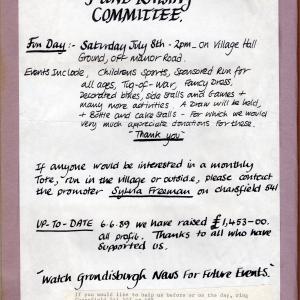 Fund Raising
COMMITTEE.
Fun Day :- Saturday July 8th - 2pm - on Village Hall
Ground, off Manor Road.
Events Include, Childrens Sports, Sponsored Run for
all ages, Tug-of-war, Fancy Dress,
Decorated bikes, Side Stalls and Games +
many more activities. A Draw will be held,
+ Bottle and cake stalls - For which we would
very much appreciate donations for these.
"Thank you"
If anyone would be interested in a monthly
Tote, run in the village or outside, please contact
the promoter Sylvia Freeman on Charsfield 541
UP-TO-DATE 6.6.89 we have raised £1,453-00.
all profit. Thanks to all who have
supported us.
"Watch Grundisburgh News For Future Events."
If you would like to help us before or on the day, ring